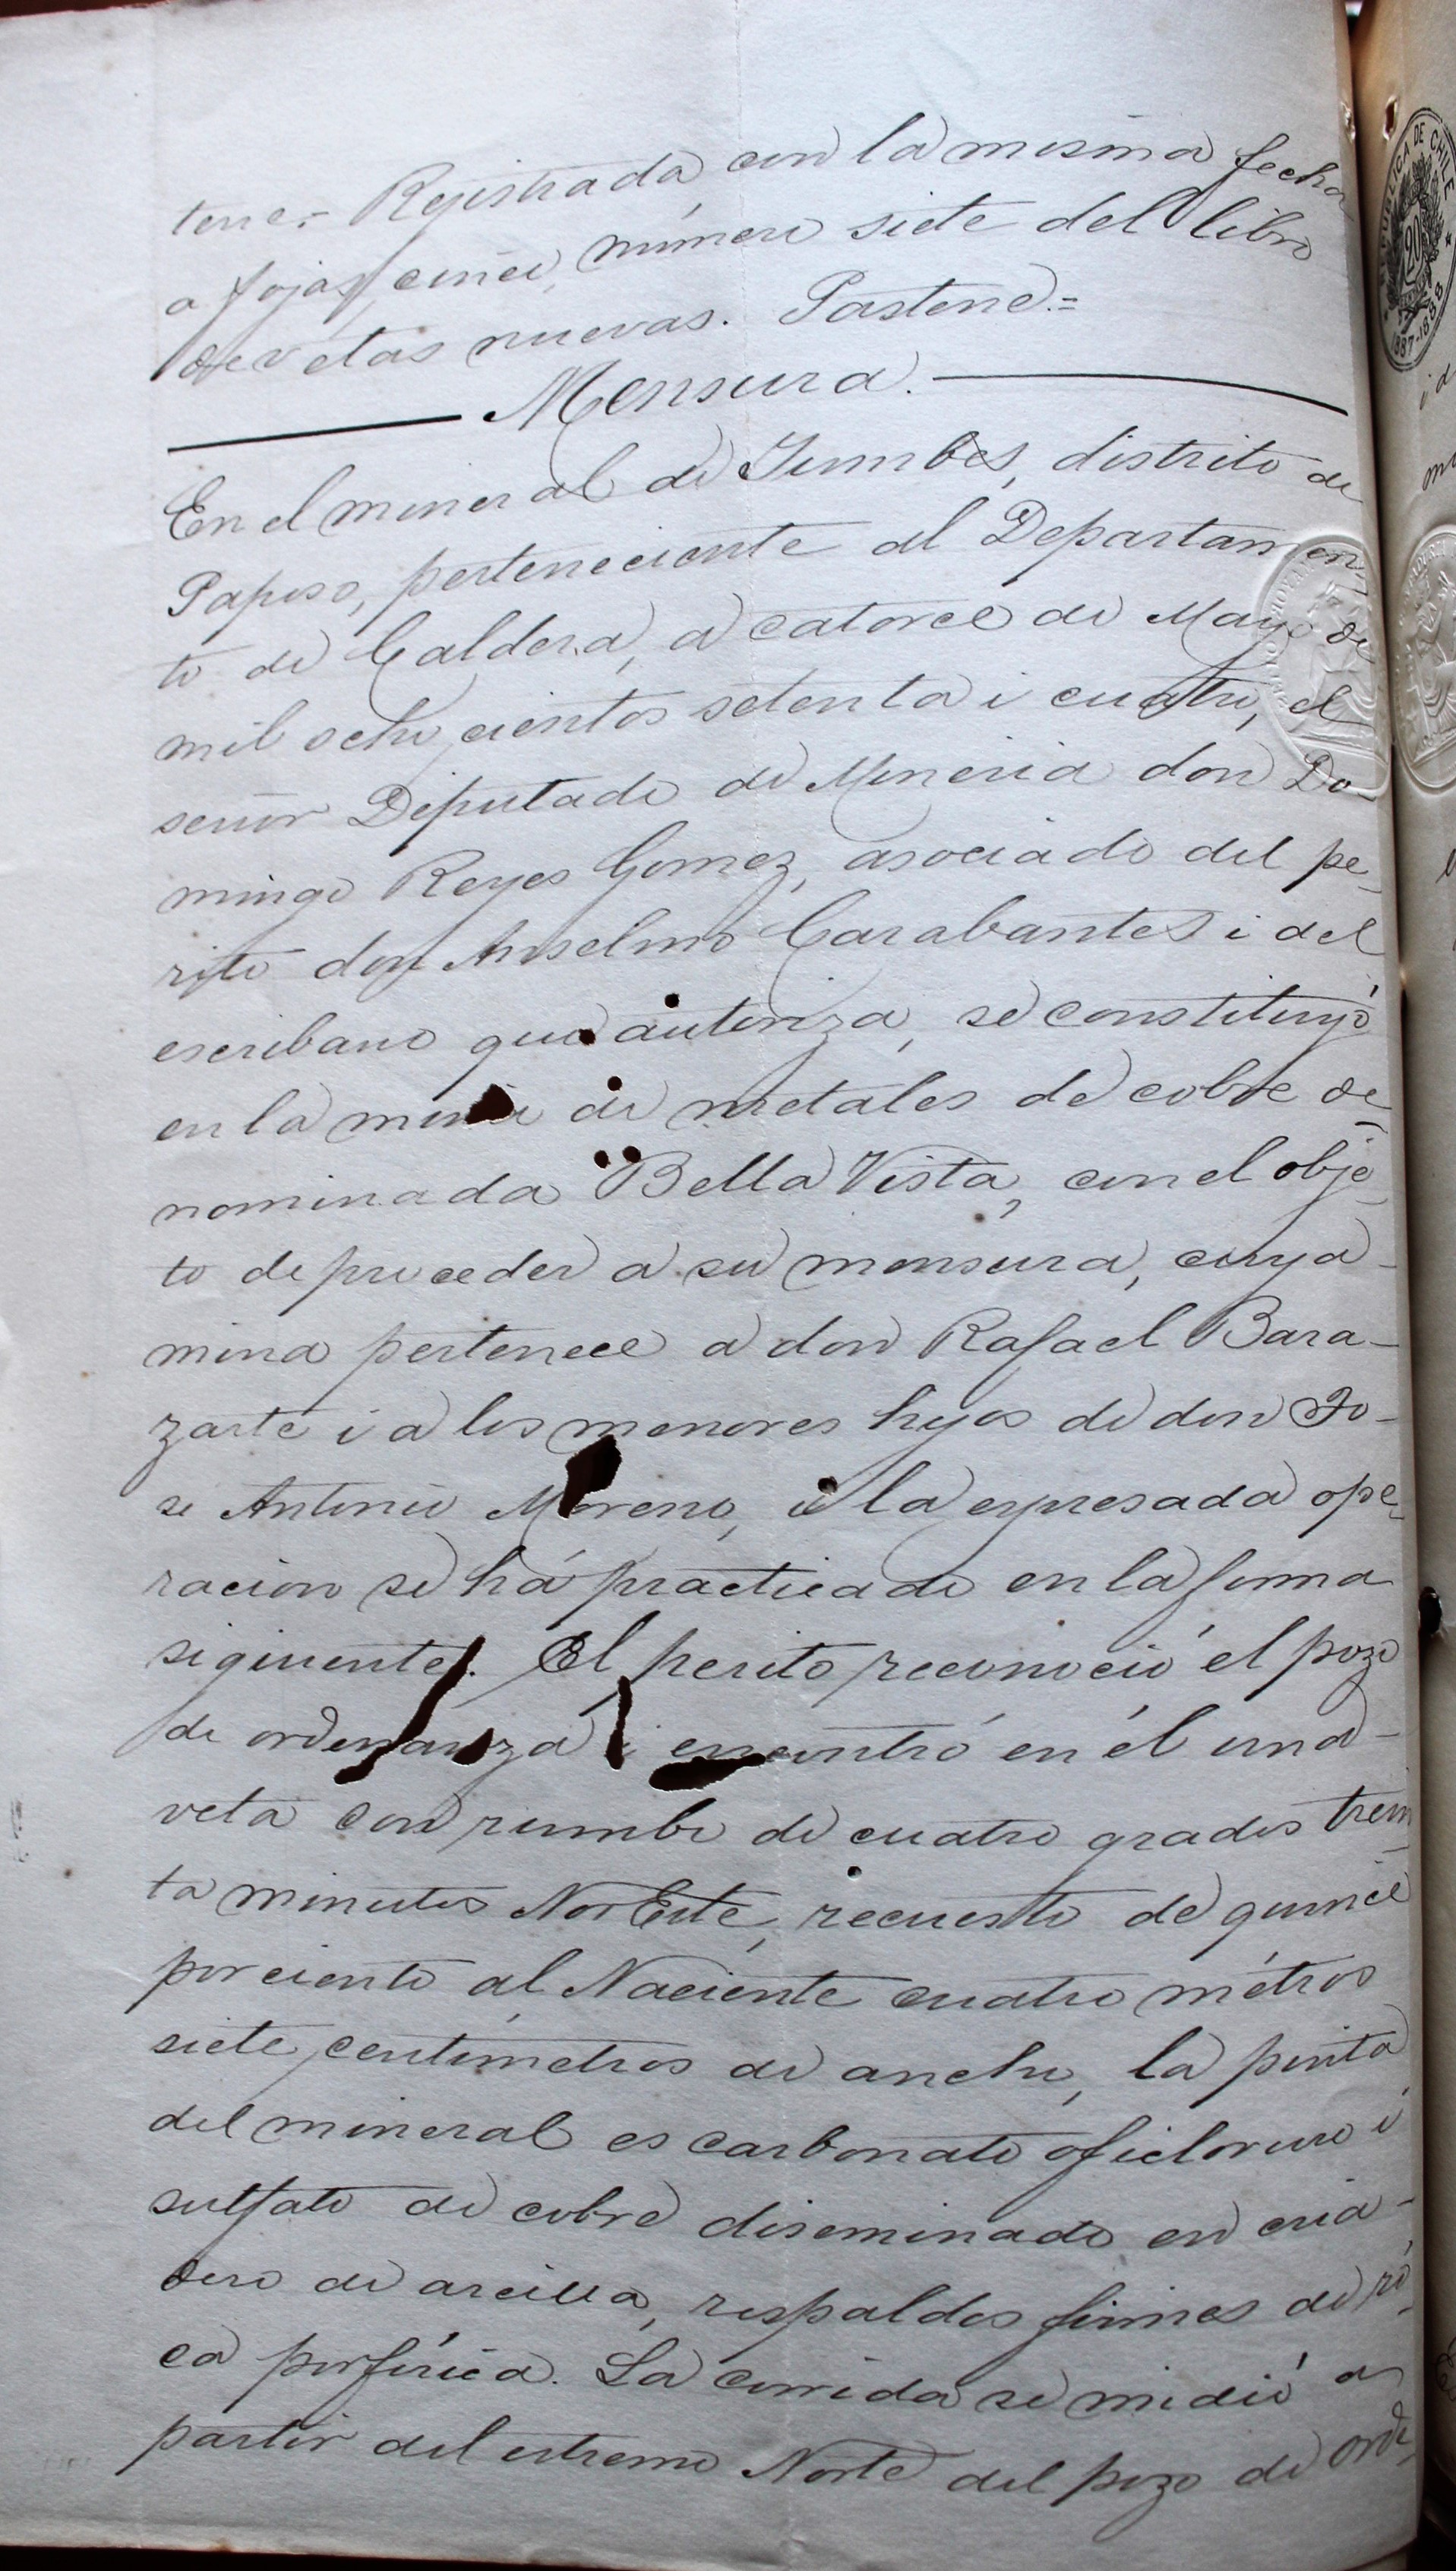 tene.- Rejistrada con la misma fecha
a fojas cinco, número siete del libro
de vetas nuevas. Pastene.=
Mensura.
En el mineral de Tumbes, distrito de
Paposo, perteneciente al Departamen-
to de Caldera, a catorce de Mayo de
mil ochocientos setenta i cuatro, el
señor Diputado de Mineria don Do-
mingo Reyes Gomez, asociado del pe-
rito don Anselmo Carabantes i del
escribano que autoriza, se constituyó
en la mina de metales de cobre de-
nominada Bella Vista, con el obje-
to de proceder a su mensura, cuya
mina pertenece a don Rafael Bara-
zarte i a los menores hijos de don Jo-
se Antonio Moreno, i la espresada ope-
racion se há practicado en la forma
siguiente. El perito reconoció el pozo
de ordenanza i encontró en él una
veta con rumbo de cuatro grados trein-
ta minutos NorEste, recuesto de quince
por ciento al Naciente cuatro métros
siete centimetros de ancho, la pinta
del mineral es carbonato oficloruro i
sulfato de cobre diseminado en cria-
dero de arcilla, respaldos firmes de ro-
ca porfírica. La corrida se midió a
partir del estremo Norte del pozo de orde-
REPUBLICA DE CHILE
20
1887-1888